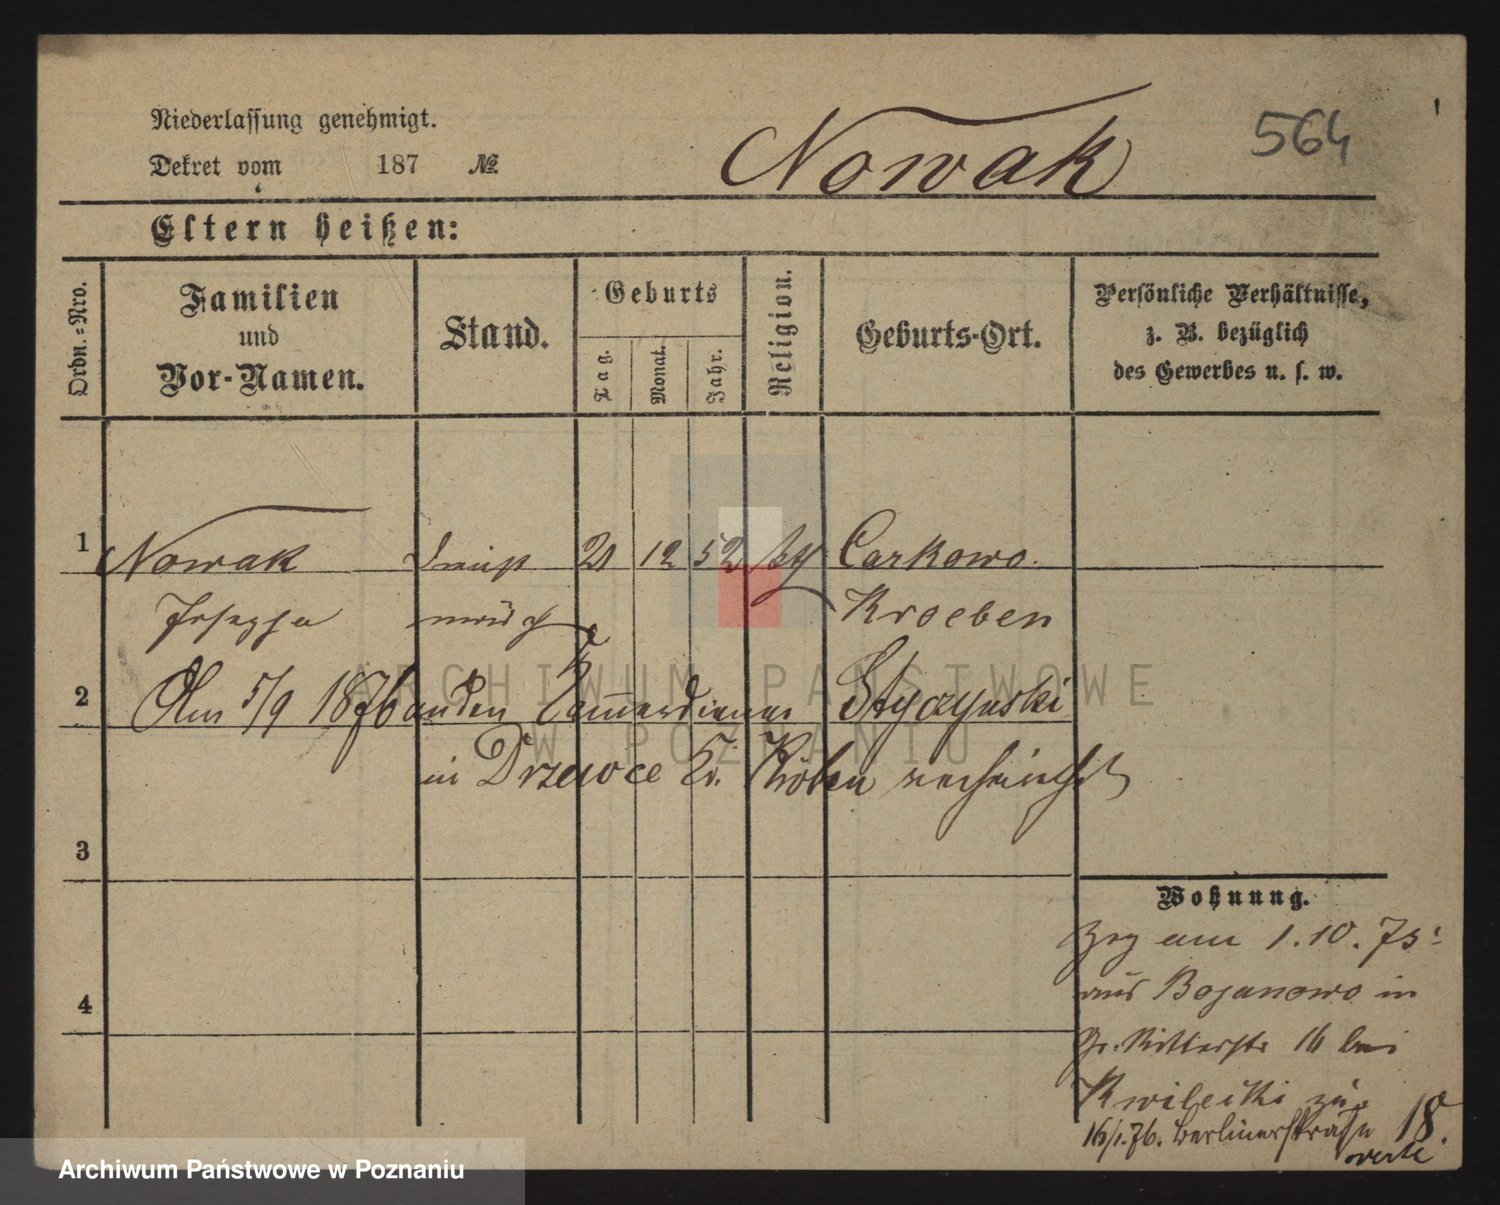 Niederlassung genehmigt.
Dekret vom 187 №
Nowak
564
Eltern heißen:
Ordn.-Nro.
Familien
und
Vor-Namen.
Stand.
Geburts
Tag.
Monat.
Jahr.
Religion.
Geburts-Ort.
Persönliche Verhältnisse,
z. B. bezüglich
des Gewerbes u. s. w.
1 Nowak 21 12 52 Carkowo
Josepha Kroeben
ARCHIWUM PAŃSTWOWE
W POZNANIU
2 Am 5/9 1876 an den Kammerdiener Styczynski
in Drzewce Kr. Kröben
3
4
Wohnung.
Zzg am 1. 10. 75
aus Bojanowo in
Gr. Ritterstr 16 bei
Kwilecki zu
16/1. 76. Berlinerstraße 18.
verte
Archiwum Państwowe w Poznaniu